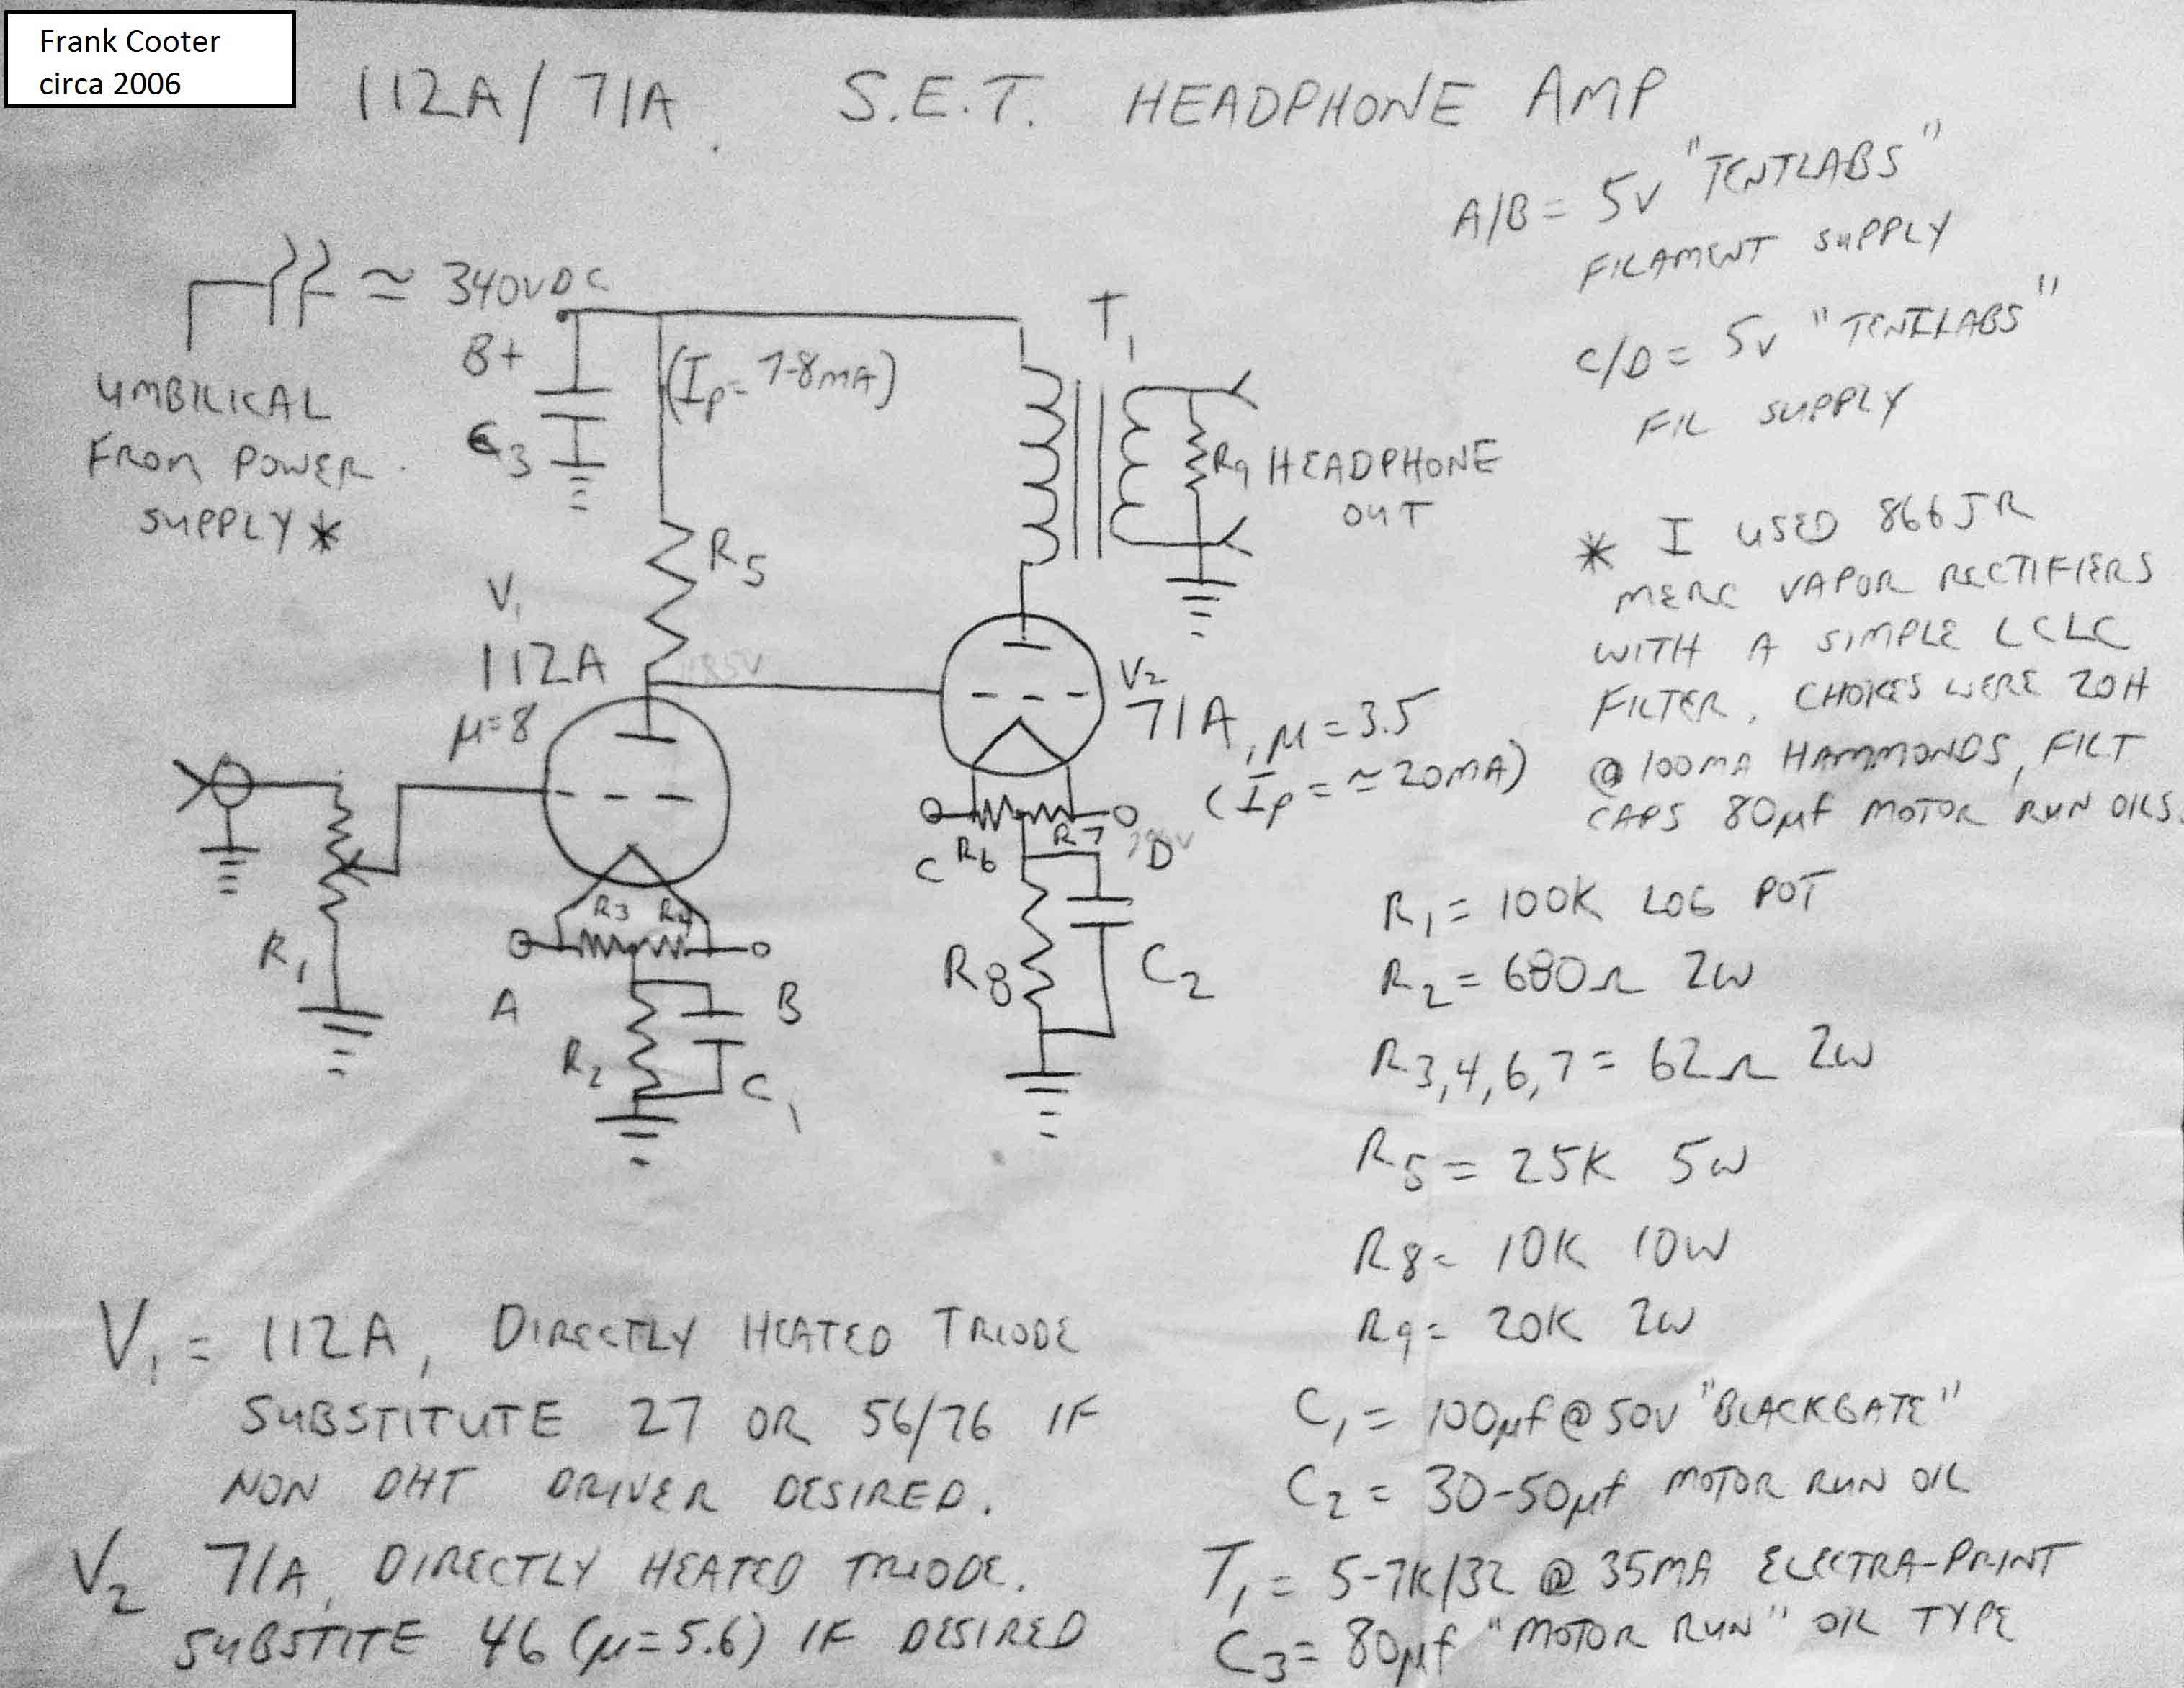 Frank Cooter
circa 2006
112A/71A S.E.T. HEADPHONE AMP
A/B = 5V "TENTLABS"
FILAMENT SUPPLY
C/D = 5V "TENTLABS"
FIL SUPPLY
≃ 340VDC
B+
C3
(Ip= 7-8mA)
T1
UMBILICAL
FROM POWER
SUPPLY *
R9 HEADPHONE
OUT
R5
V1
112A
μ=8
V2
71A, μ = 3.5
(Ip = ≈ 20mA)
* I USED 866JR
MERC VAPOR RECTIFIERS
WITH A SIMPLE LCLC
FILTER, CHOKES WERE 20H
@ 100mA HAMMONDS, FILT
CAPS 80μf MOTOR RUN OILS.
C R6 R7 D
R3 R4
R1
A B
R2 C1
R8 C2
R1 = 100K LOG POT
R2 = 680Ω 2W
R3,4,6,7 = 62Ω 2W
R5 = 25K 5W
R8= 10K 10W
R9= 20K 2W
C1 = 100μf @ 50V "BLACKGATE"
C2 = 30-50μf MOTOR RUN OIL
T1 = 5-7K/32 @ 35MA ELECTRA-PRINT
C3= 80μf "MOTOR RUN" OIL TYPE
V1 = 112A, DIRECTLY HEATED TRIODE
SUBSTITUTE 27 OR 56/76 IF
NON DHT DRIVER DESIRED.
V2 71A, DIRECTLY HEATED TRIODE.
SUBSTITE 46 (μ=5.6) IF DESIRED